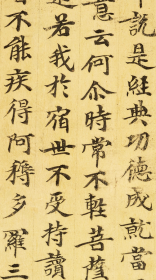 中說是經典功德成就當
意云何尒時常不輕菩薩
是若我於宿世不受持讀
者不能疾得阿耨多羅三